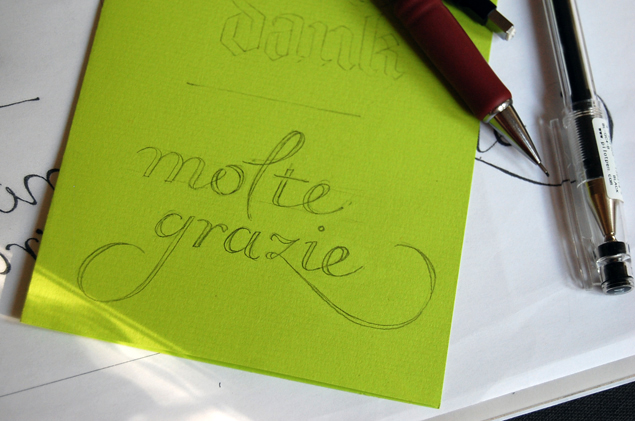 dank
molte
grazie